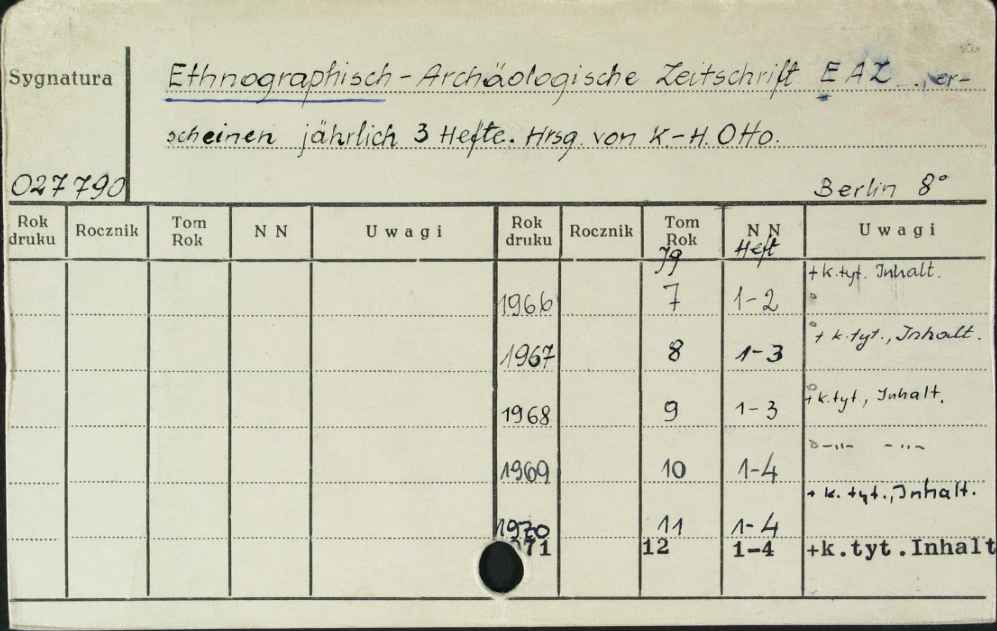 Sygnatura
Ethnographisch-Archäologische Zeitschrift EAZ er-
scheinen jährlich 3 Hefte. Hrsg. von K-H. Otto.
027790 Berlin 8°
Rok druku Rocznik Tom Rok NN Uwagi Rok druku Rocznik Tom Rok NN Uwagi
Jg Heft
+ k.tyt. Inhalt.
1966 7 1-2
+ k.tyt., Inhalt.
1967 8 1-3
+ k.tyt., Inhalt.
1968 9 1-3
-"- -"-
1969 10 1-4
+ k. tyt., Inhalt.
1970 11 1-4
71 12 1-4 +k.tyt.Inhalt